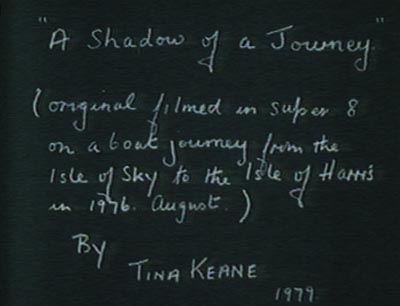 "A Shadow of a Journey."
(original filmed in super 8
on a boat journey from the
Isle of Sky to the Isle of Harris
in 1976. August.)
By
TINA KEANE
1979